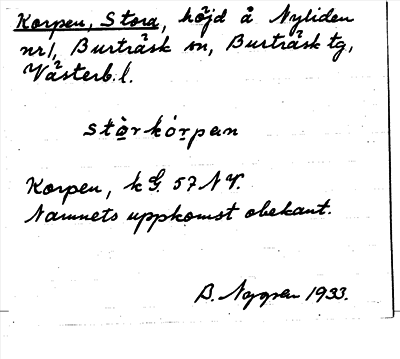 Korpen, Stora, höjd å Nyliden
nr 1, Burträsk sn, Burträsk tg,
Västerb. l.
stòrkórpan
Korpen, k G. 57 NV.
Namnets uppkomst obekant.
B. Nygren 1933.